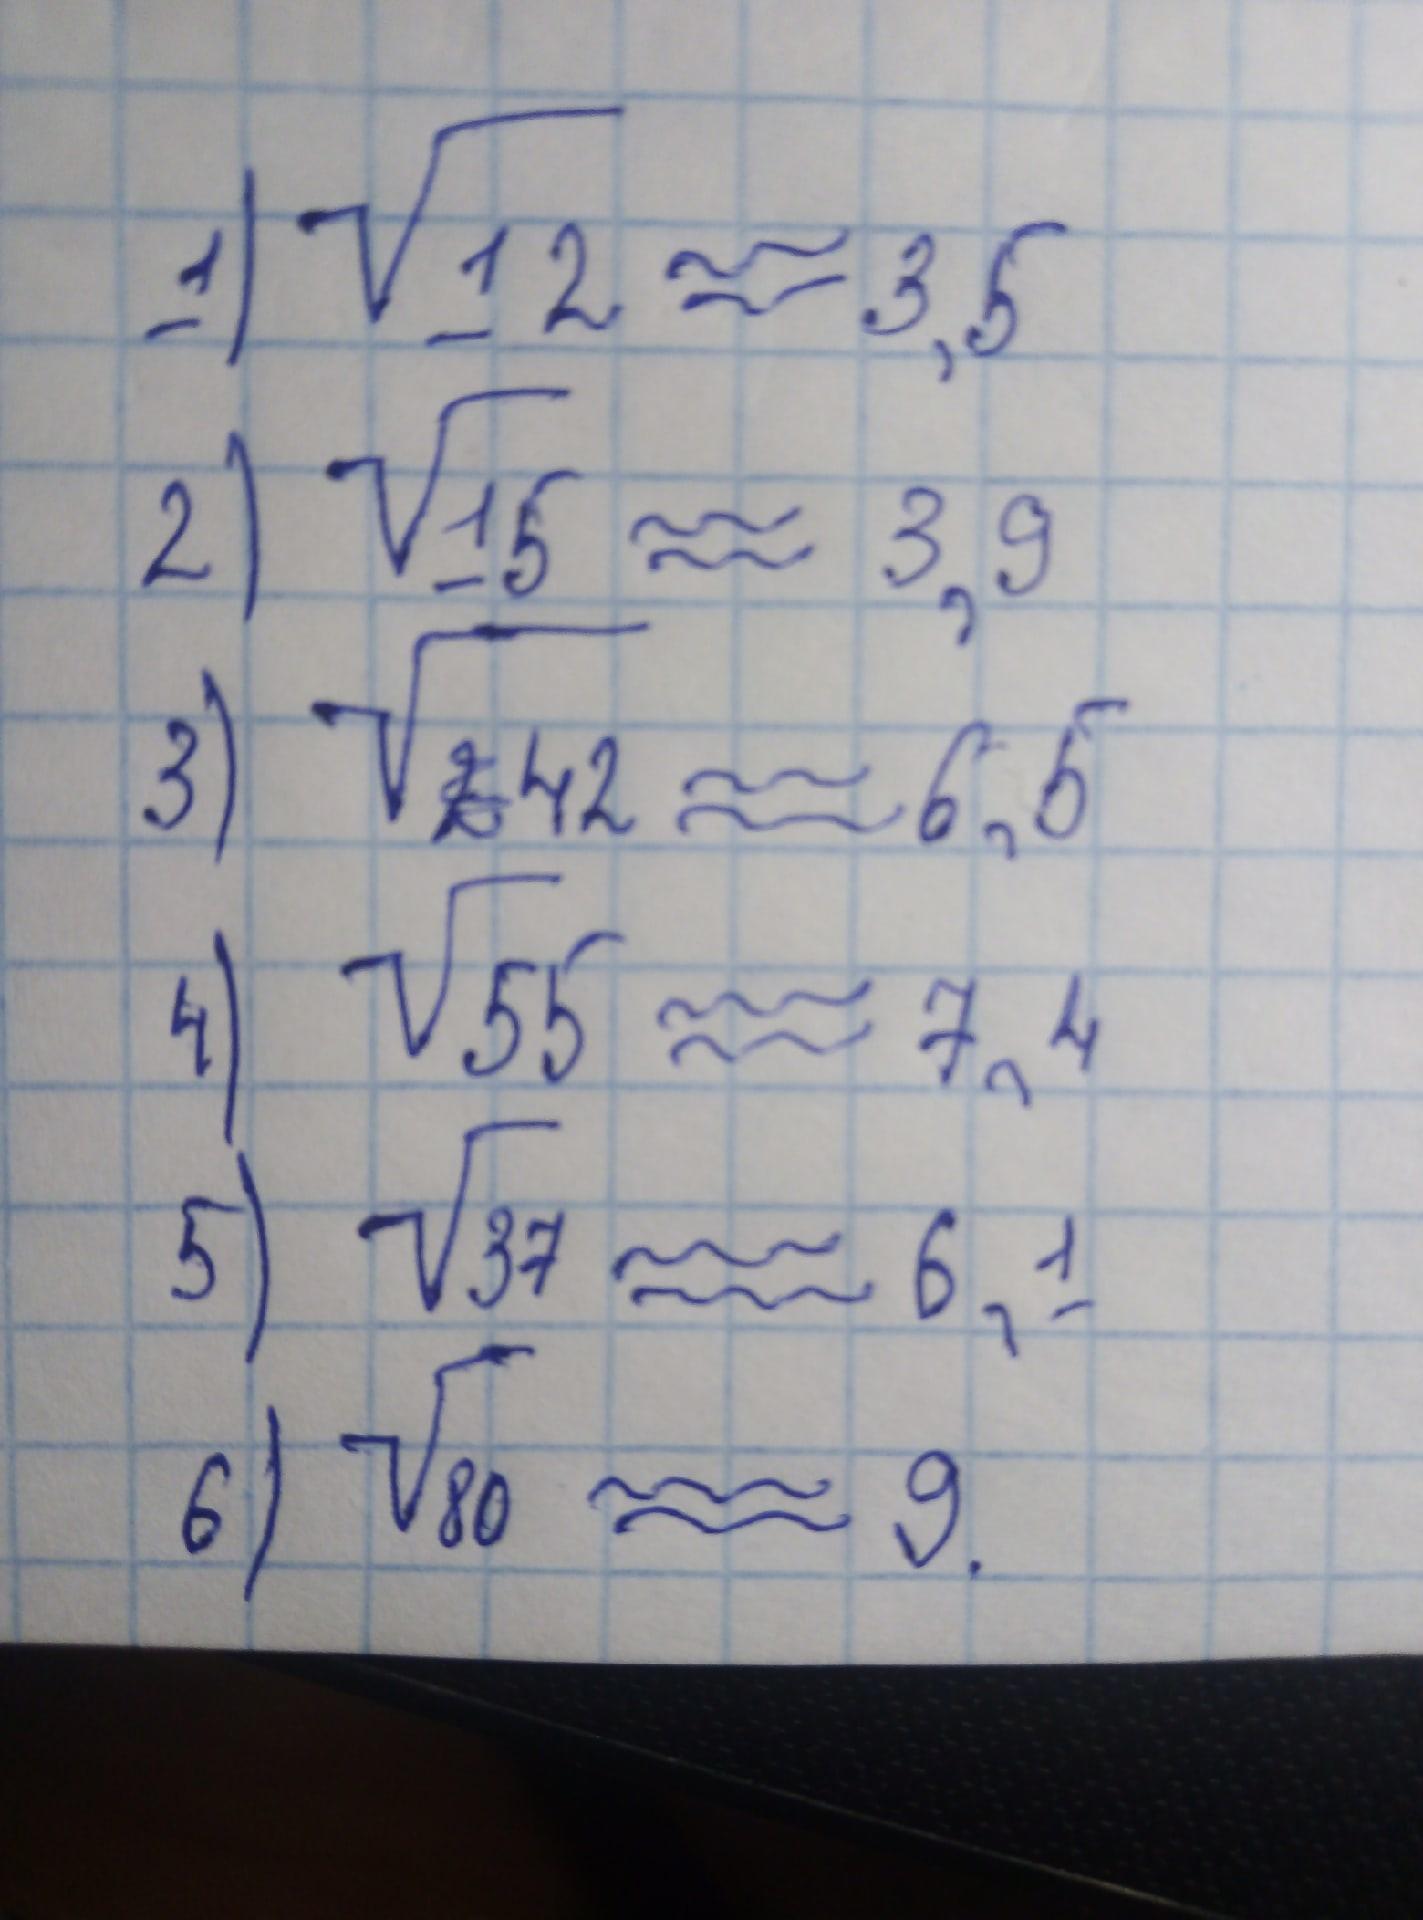 1) √12 ≈ 3,5
2) √15 ≈ 3,9
3) √42 ≈ 6,5
4) √55 ≈ 7,4
5) √37 ≈ 6,1
6) √80 ≈ 9.